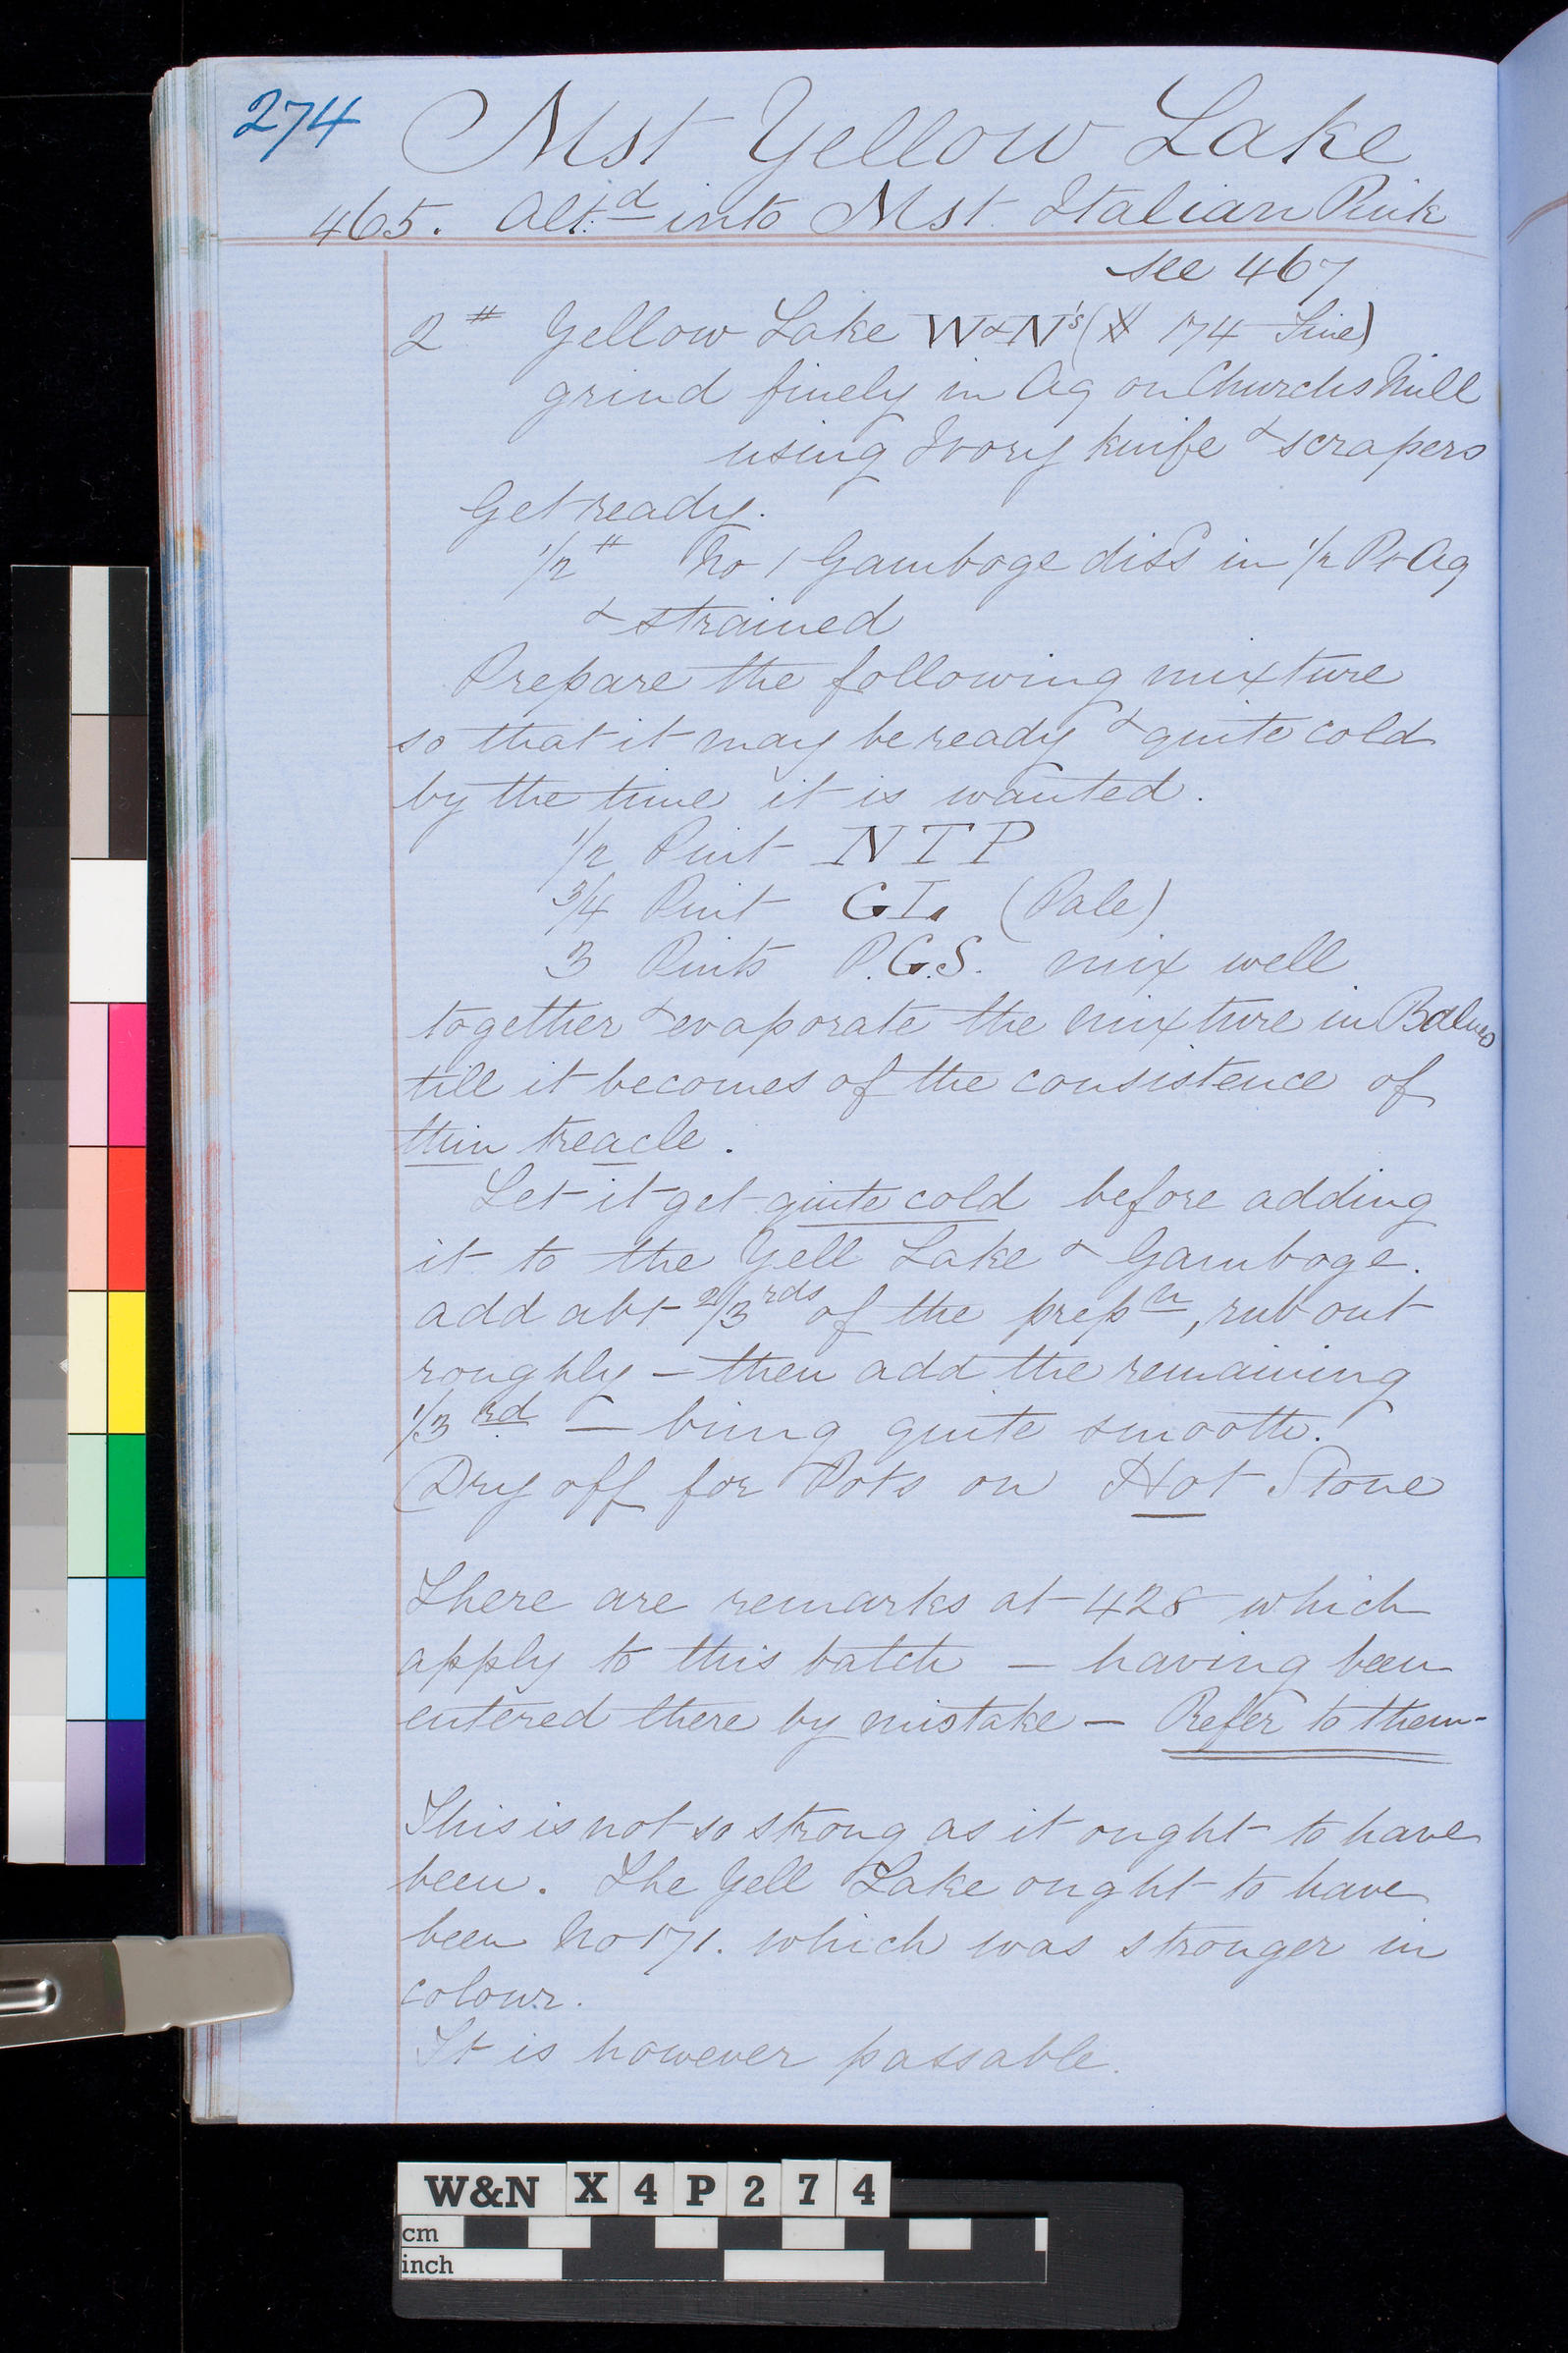 274
Mst Yellow Lake
465. Alt.d into Mst Italian Pink
see 467
2 # Yellow Lake W&N's ( 174 Fine)
grind finely in Aq on Churchs Mill
using Ivory knife & scrapers
Get ready.
1/2 # No 1 Gamboge diss in 1/2 Pt Aq
& strained
Prepare the following mixture
so that it may be ready & quite cold
by the time it is wanted.
1/2 Pint NTP
3/4 Pint GL. (Pale)
3 Pints P.G.S. mix well
together & evaporate the mixture in Balneo
till it becomes of the consistence of
thin treacle.
Let it get quite cold before adding
it to the Yell Lake & Gamboge.
add abt 2/3rds of the prepn, rub out
roughly – then add the remaining
1/3rd – bring quite smooth.
Dry off for Pots on Hot Stone
There are remarks at 428 which
apply to this batch – having been
entered there by mistake – Refer to them-
This is not so strong as it ought to have
been. The Yell Lake ought to have
been No 171. which was stronger in
colour.
It is however passable.
W&N X 4 P 2 7 4
cm
inch